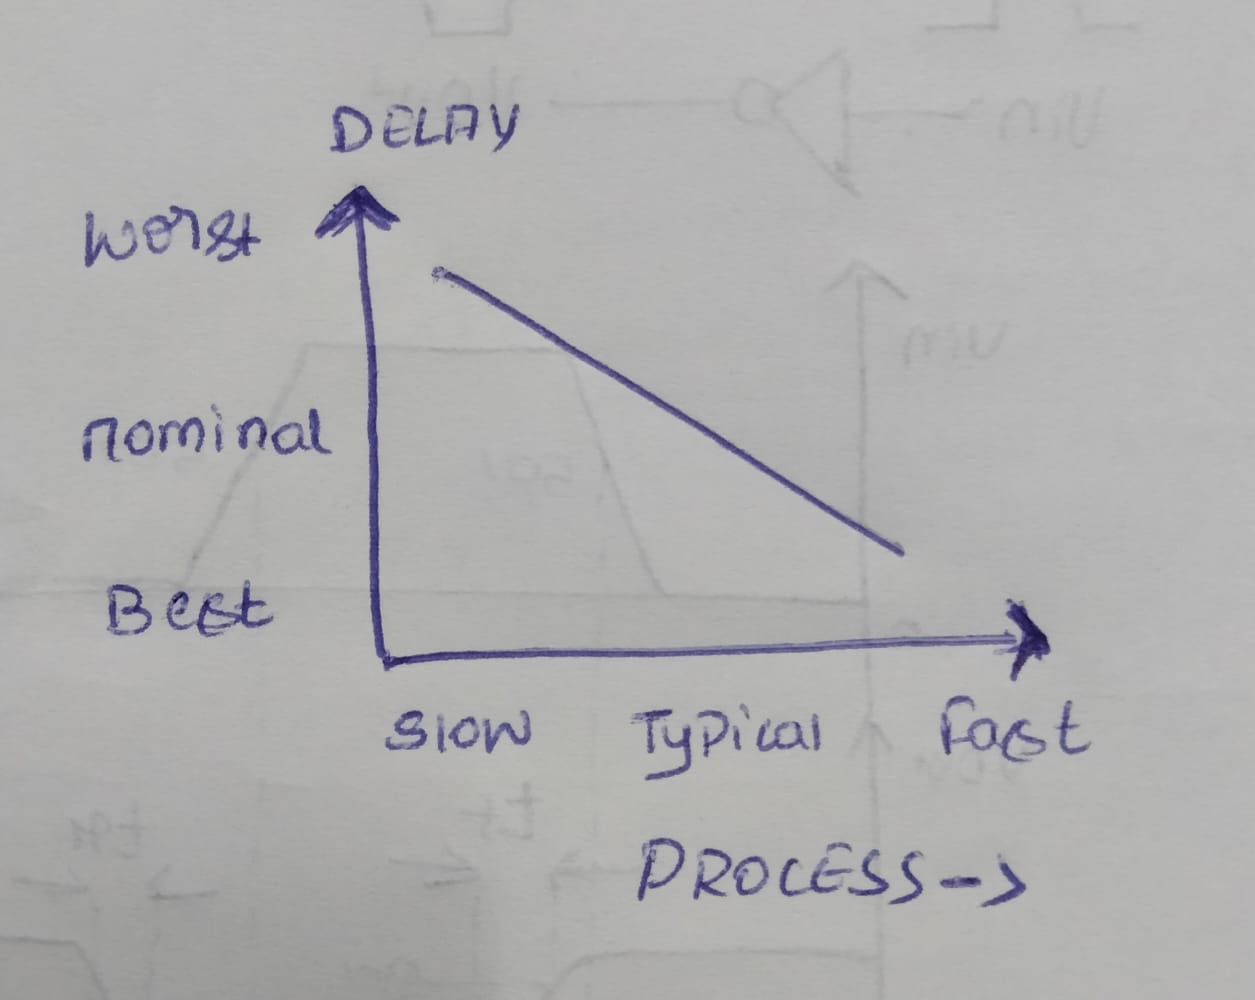 DELAY
Worst
nominal
Best
Slow Typical Fast
PROCESS-->